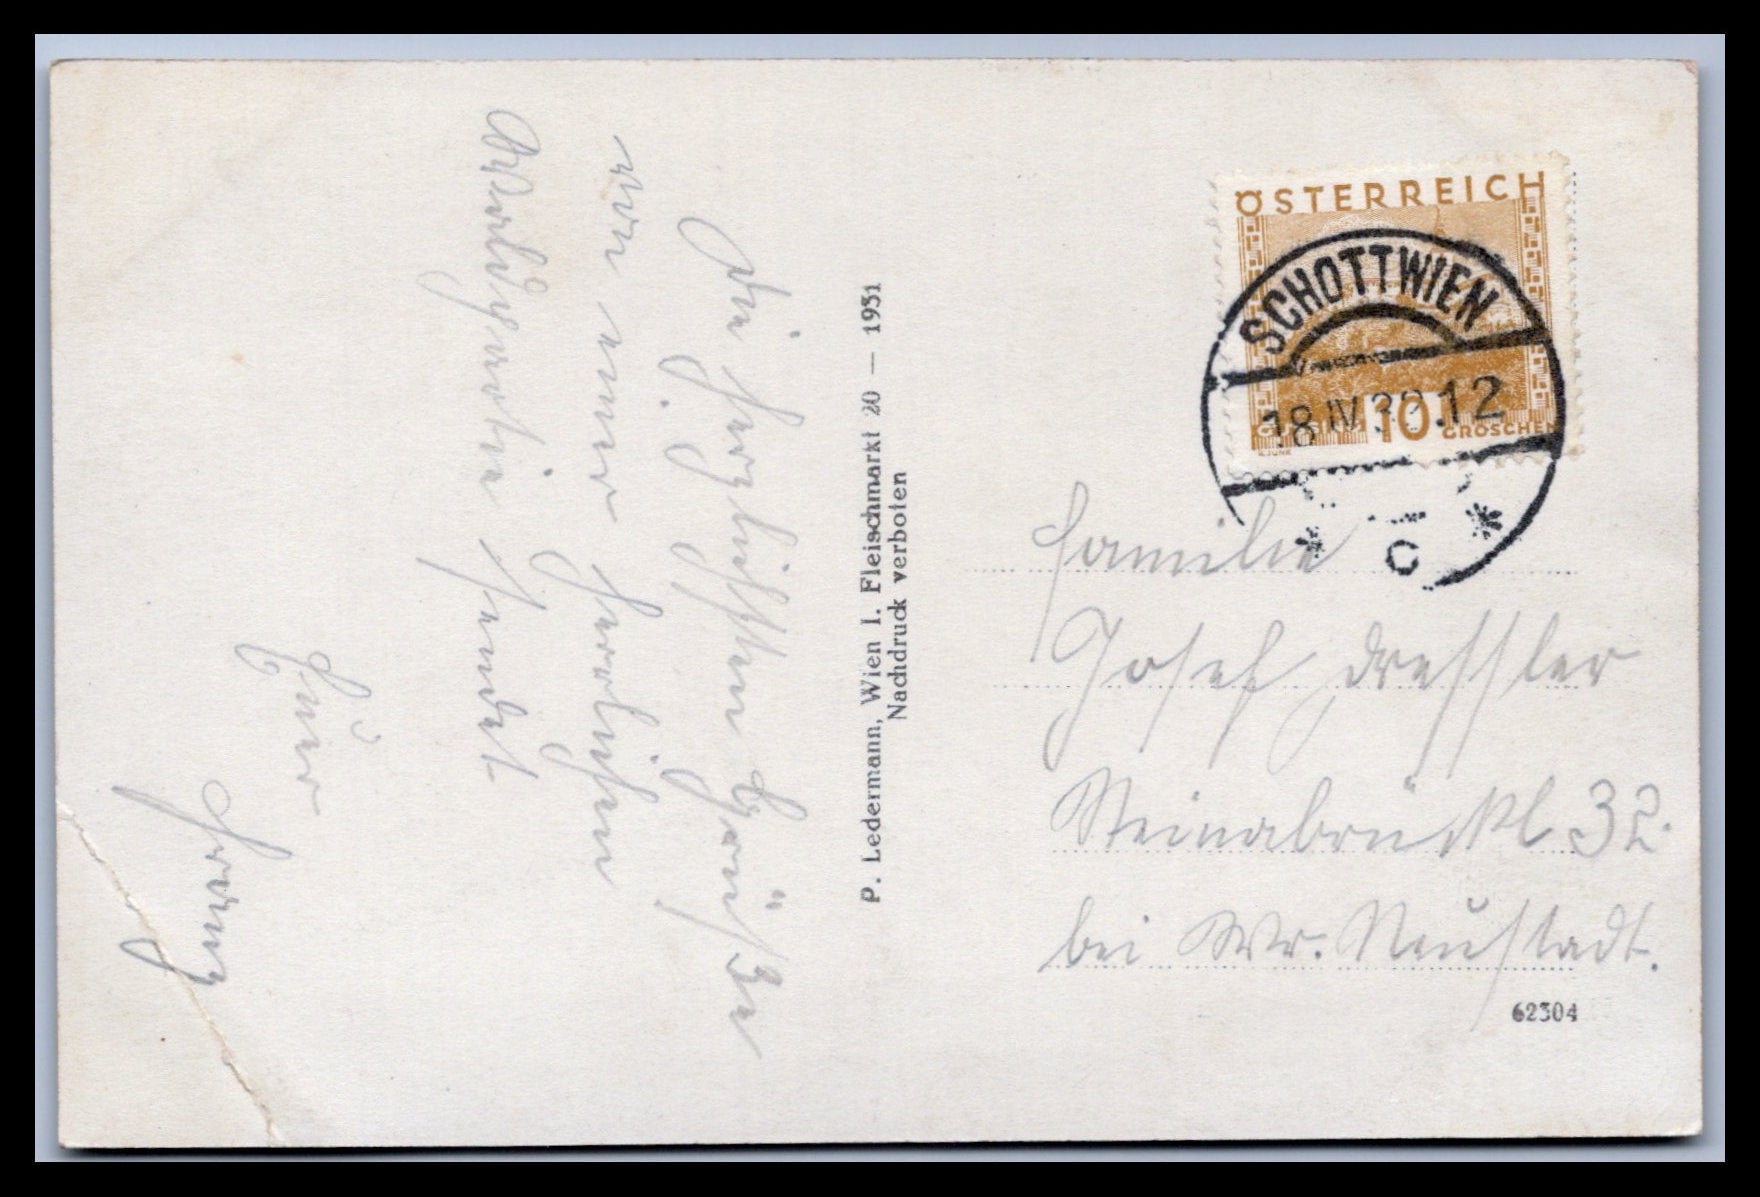 Die herzlichsten Grüße
von einer herrlichen
Waldpartie sendet
Euer
Franz
P. Ledermann, Wien I. Fleischmarkt 20 — 1931
Nachdruck verboten
ÖSTERREICH
10 GROSCHEN
SCHOTTWIEN
18.IV.32.12
* c *
Familie
Josef Dressler
Steinabrückl 32.
bei Wr. Neustadt.
62304